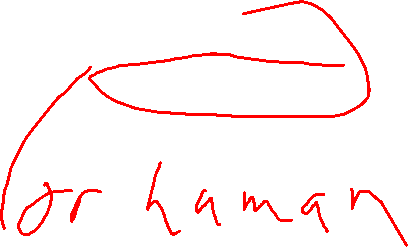 or haman